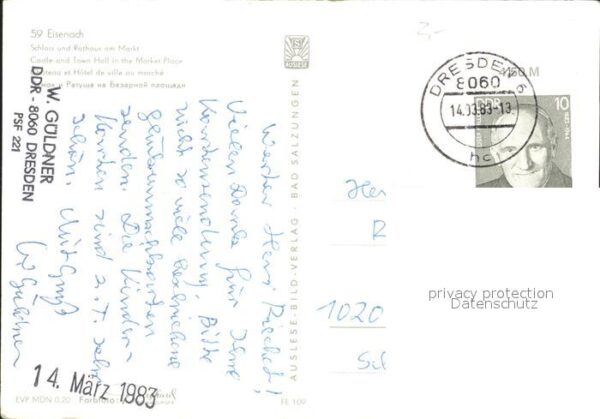 59 Eisenach
Schloss und Rathaus am Markt
Castle and Town Hall in the Market Place
Château et Hôtel de ville au marché
Замок и Ратуша на Базарной площади
AUSLESE
2,-
W. GÜLDNER
DDR - 8060 DRESDEN
PSF 221
Werter Herr
Vielen Dank für Ihre
Kartensendung. Bitte
nicht so viele
Glückwunschkarten
senden. Die Kinder-
karten sind z.T. sehr
schön. Mit Gruß
W. Güldner
14. März 1983
EVP MDN 0,20
FE 109
AUSLESE-BILD-VERLAG · BAD SALZUNGEN
DRESDEN 6
8060
14.03.83-13
hc
DDR
10
Her
R
1020
privacy protection
Datenschutz